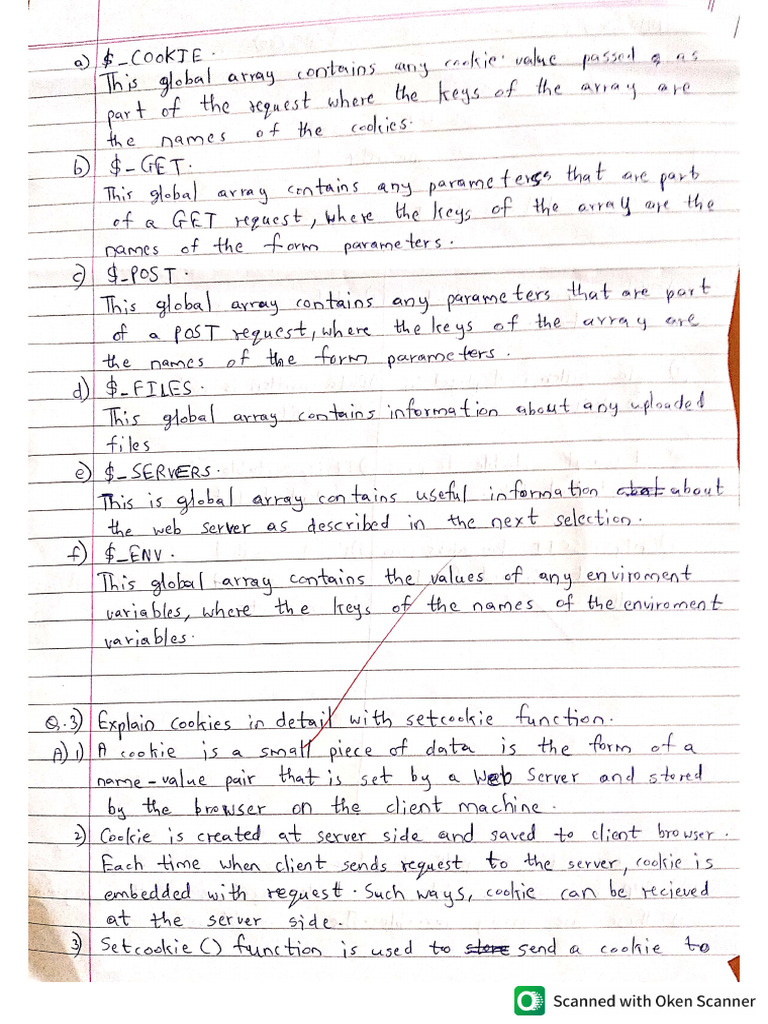 a) $_COOKIE.
This global array contains any cookie value passed as
part of the request where the keys of the array are
the names of the cookies.
b) $_GET.
This global array contains any parameters that are part
of a GET request, where the keys of the array are the
names of the form parameters.
c) $_POST.
This global array contains any parameters that are part
of a POST request, where the keys of the array are
the names of the form parameters.
d) $_FILES.
This global array contains information about any uploaded
files
e) $_SERVERS.
This is global array contains useful information about
the web server as described in the next selection.
f) $_ENV.
This global array contains the values of any enviroment
variables, where the keys of the names of the enviroment
variables.
Q.3) Explain cookies in detail with setcookie function.
A) 1) A cookie is a small piece of data is the form of a
name-value pair that is set by a Web Server and stored
by the browser on the client machine.
2) Cookie is created at server side and saved to client browser.
Each time when client sends request to the server, cookie is
embedded with request. Such ways, cookie can be recieved
at the server side.
3) Setcookie() function is used to store send a cookie to
Scanned with Oken Scanner